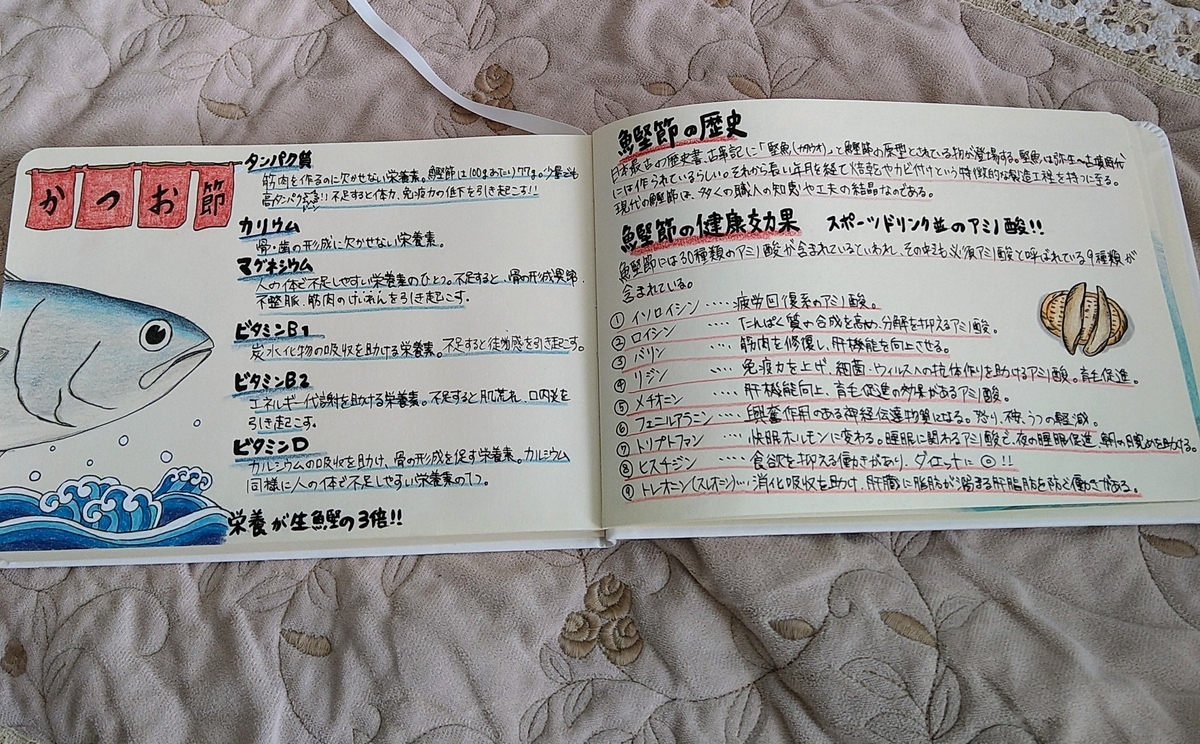 かつお節
タンパク質
筋肉を作るのに欠かせない栄養素。鰹節は100gあたり77g。少量でも
高タンパク質!!不足すると体力、免疫力の低下を引き起こす!!
カリウム
骨・歯の形成に欠かせない栄養素。
マグネシウム
人の体で不足しやすい栄養素のひとつ。不足すると、骨の形成異常、
不整脈、筋肉のけいれんを引き起こす。
ビタミンB1
炭水化物の吸収を助ける栄養素。不足すると倦怠感を引き起こす。
ビタミンB2
エネルギー代謝を助ける栄養素。不足すると肌荒れ、口内炎を
引き起こす。
ビタミンD
カルシウムの吸収を助け、骨の形成を促す栄養素。カルシウム
同様に人の体で不足しやすい栄養素の1つ。
栄養が生鰹の3倍!!
鰹節の歴史
日本最古の歴史書、古事記に「堅魚(カタウオ)」と鰹節の原型とされている物が登場する。堅魚は弥生〜古墳時代
には作られているらしい。それから長い年月を経て焙乾やカビ付けという特徴的な製造工程を持つに至る。
現代の鰹節は、多くの職人の知恵や工夫の結晶なのである。
鰹節の健康効果 スポーツドリンク並のアミノ酸!!
鰹節には30種類のアミノ酸が含まれているといわれ、その中でも必須アミノ酸と呼ばれている9種類が
含まれている。
① イソロイシン ‥‥ 疲労回復系のアミノ酸。
② ロイシン ‥‥ たんぱく質の合成を高め、分解を抑えるアミノ酸。
③ バリン ‥‥ 筋肉を修復し、肝機能を向上させる。
④ リジン ‥‥ 免疫力を上げ、細菌・ウィルスへの抗体作りを助けるアミノ酸。育毛促進。
⑤ メチオニン ‥‥ 肝機能向上、育毛促進の効果があるアミノ酸。
⑥ フェニルアラニン ‥‥ 興奮作用のある神経伝達物質になる。怒り、うつの軽減。
⑦ トリプトファン ‥‥ 快眠ホルモンに変わる。睡眠に関わるアミノ酸で、夜の睡眠促進、朝の目覚めを助ける。
⑧ ヒスチジン ‥‥ 食欲を抑える働きがあり、ダイエットに◎!!
⑨ トレオニン(スレオニン)‥‥ 消化吸収を助け、肝臓に脂肪が溜まる肝脂肪を防ぐ働きがある。